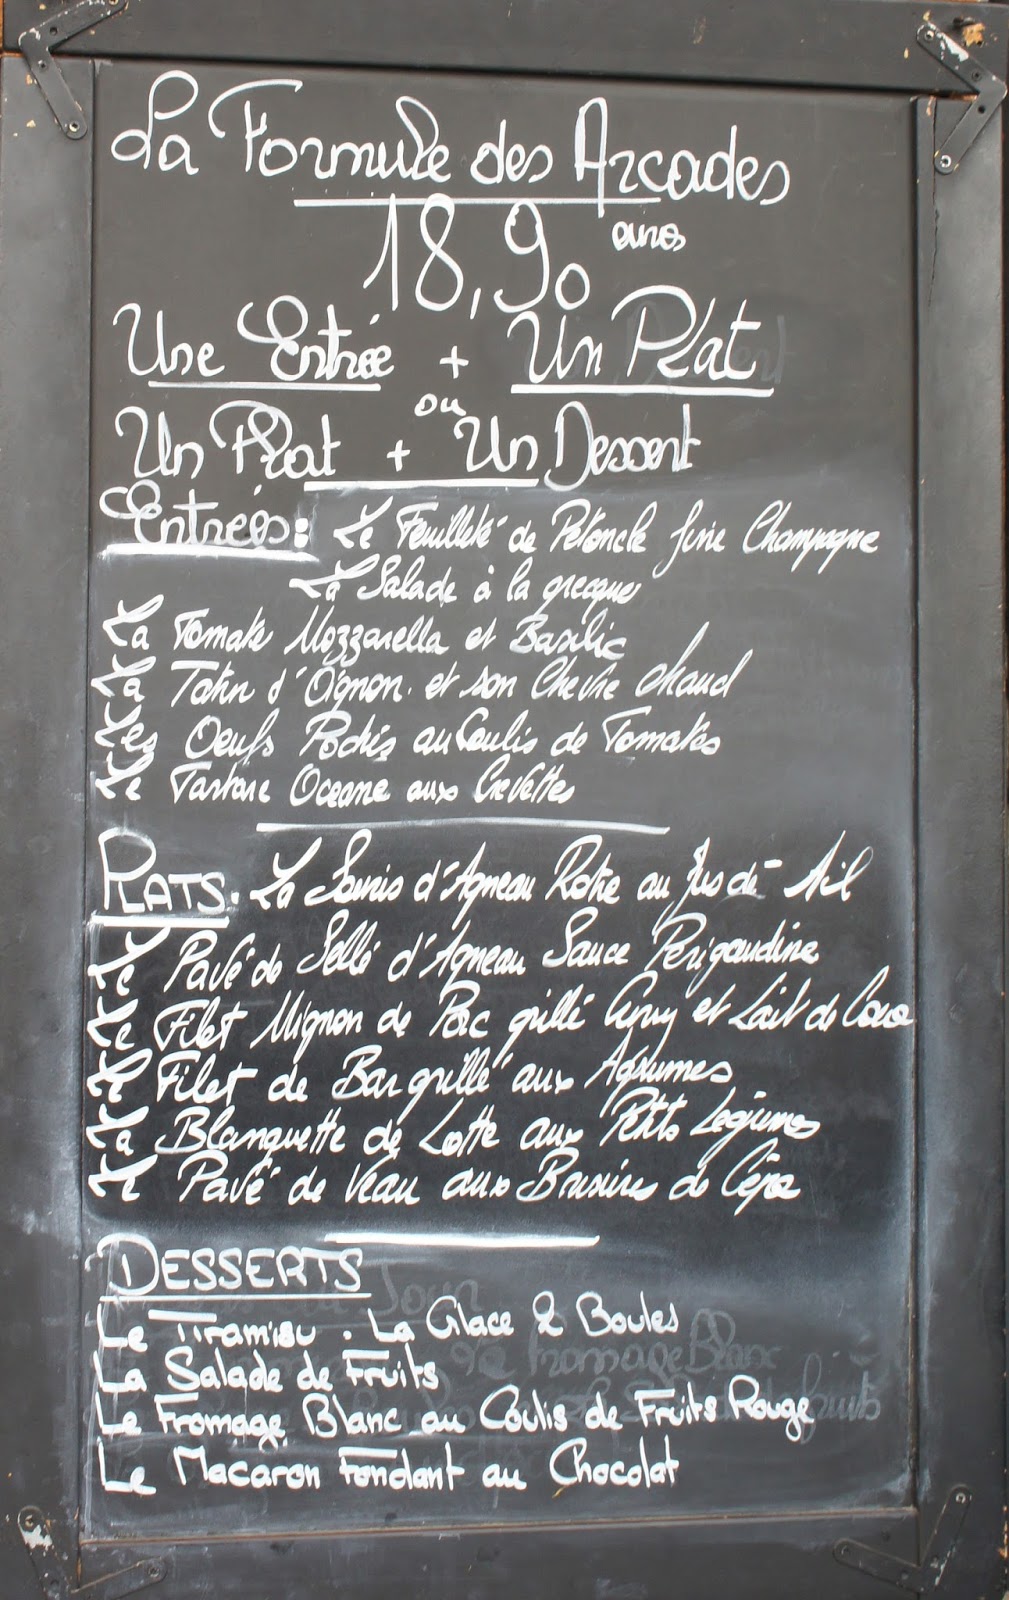 La Formule des Arcades
18,90 euros
Une Entrée + Un Plat
ou
Un Plat + Un Dessert
Entrées: Le Feuilleté de Pétoncle fine Champagne
La Salade à la grecque
La Tomate Mozzarella et Basilic
La Tatin d'Oignon et son Chèvre chaud
Les Oeufs Pochés au Coulis de Tomates
Le Tartare Oceane aux Crevettes
PLATS. La Souris d'Agneau Rotie au Jus de Ail
Le Pavé de Selle d'Agneau Sauce Perigourdine
Le Filet Mignon de Porc grillé Curry et Lait de Coco
Le Filet de Bar grillé aux Agrumes
La Blanquette de Lotte aux Petits Légumes
Le Pavé de Veau aux Brisures de Cèpe
DESSERTS
Le Tiramisu . La Glace 2 Boules
La Salade de Fruits
Le Fromage Blanc au Coulis de Fruits Rouge
Le Macaron Fondant au Chocolat